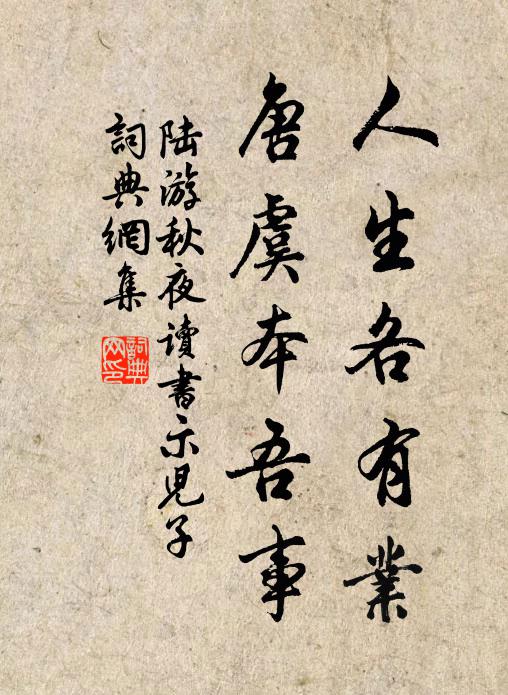 人生各有業
唐虞本吾事
陸游秋夜讀書示兒子
詞典網集
詞典网印